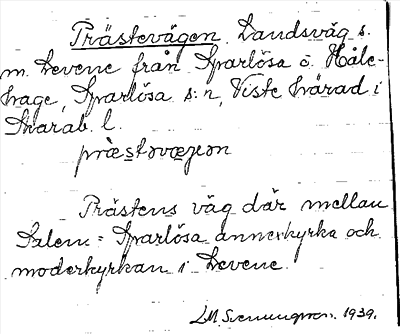 Prästevägen. Landsväg s.
m. Levene från Sparlösa ö. Håle-
hage, Sparlösa s:n, Viste härad i
Skarab. l.
præstovæjeon
Prästens väg där mellan
Salem = Sparlösa annexkyrka och
moderkyrkan i Levene.
1939.